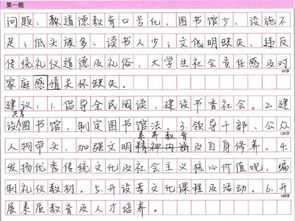 第一题
问题：敦道德教育口号化，图书馆少，设施不
足；低头族多、读书人少；文化明缺失，违反
传统美德及礼俗，大学生社会责任感及对
家庭感情关怀缺失。
建议：1.倡导全民阅读，建设书香社会。2.建
共享
设图书馆，制定图书馆法。3.领导干部、公众
素养教育
人物带头，加强文明精神内涵及自身修养。4.
发扬优秀传统文化及社会主义核心价值观，编
制礼仪教材。5.开设孝文化课程及活动。6.开
展素质教育及人才培养。